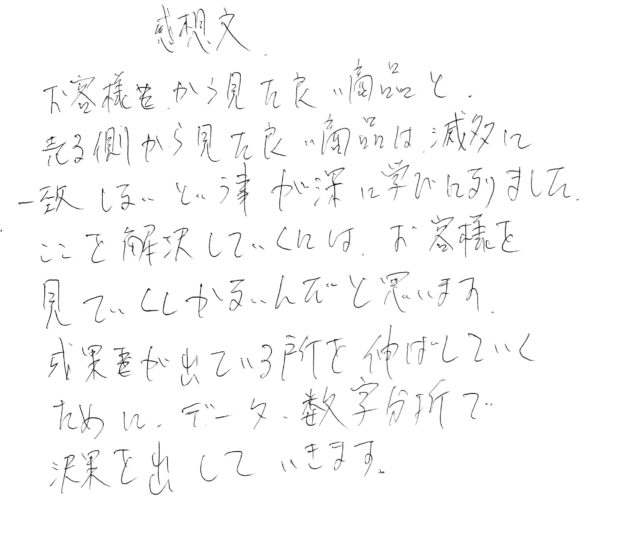 感想文
お客様から見た良い商品と、
売る側から見た良い商品は、滅多に
一致しないという事が深い学びになりました。
ここを解決していくには、お客様を
見ていくしかないんだと思います。
成果が出ている所を伸ばしていく
ために、データ、数字分析で
決果を出していきます。